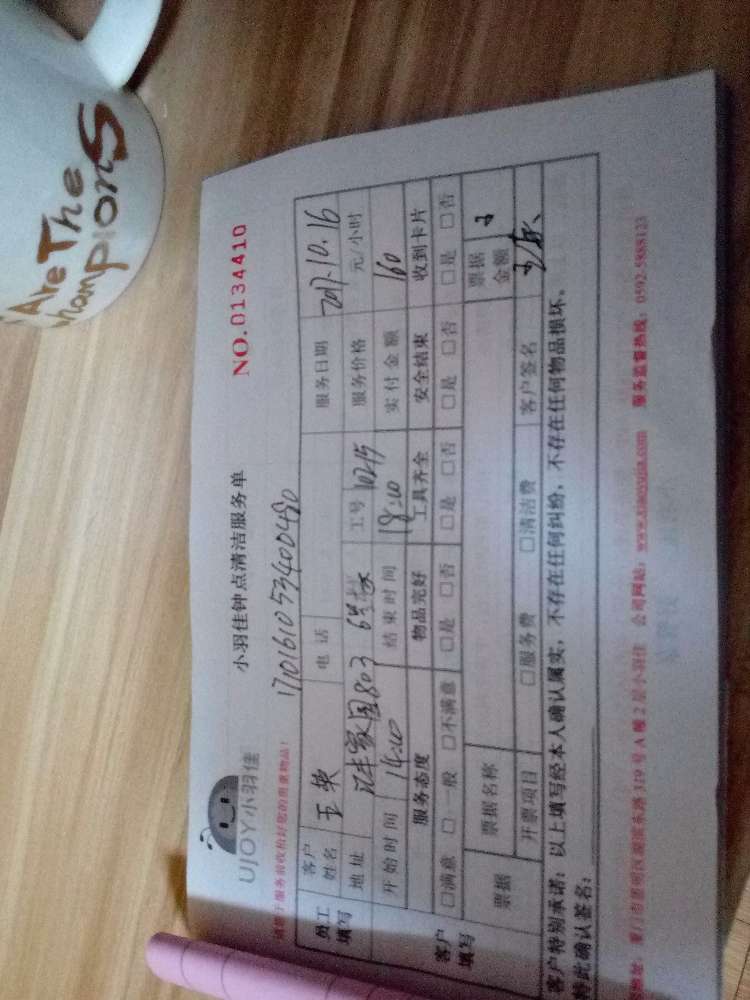 Are The
Champions
UJOY小羽佳
小羽佳钟点清洁服务单
NO.0134410
请您于服务前收拾好您的贵重物品!
170161053400480
员工填写
客户姓名
王英
电话
服务日期
2017.10.16
地址
803
工号
10215
服务价格
元/小时
开始时间
14:00
结束时间
18:00
实付金额
160
客户填写
服务态度
物品完好
工具齐全
安全结束
收到卡片
□满意 □一般 □不满意
□是 □否
□是 □否
□是 □否
□是 □否
票据
票据名称
票据金额
开票项目
□服务费
□清洁费
客户签名
客户特别承诺:以上填写经本人确认属实,不存在任何纠纷,不存在任何物品损坏。
特此确认签名:
地址:厦门市思明区湖滨东路319号A幢2层小羽佳 公司网站:www.xiaoyujia.com 服务监督热线:0592-5888123